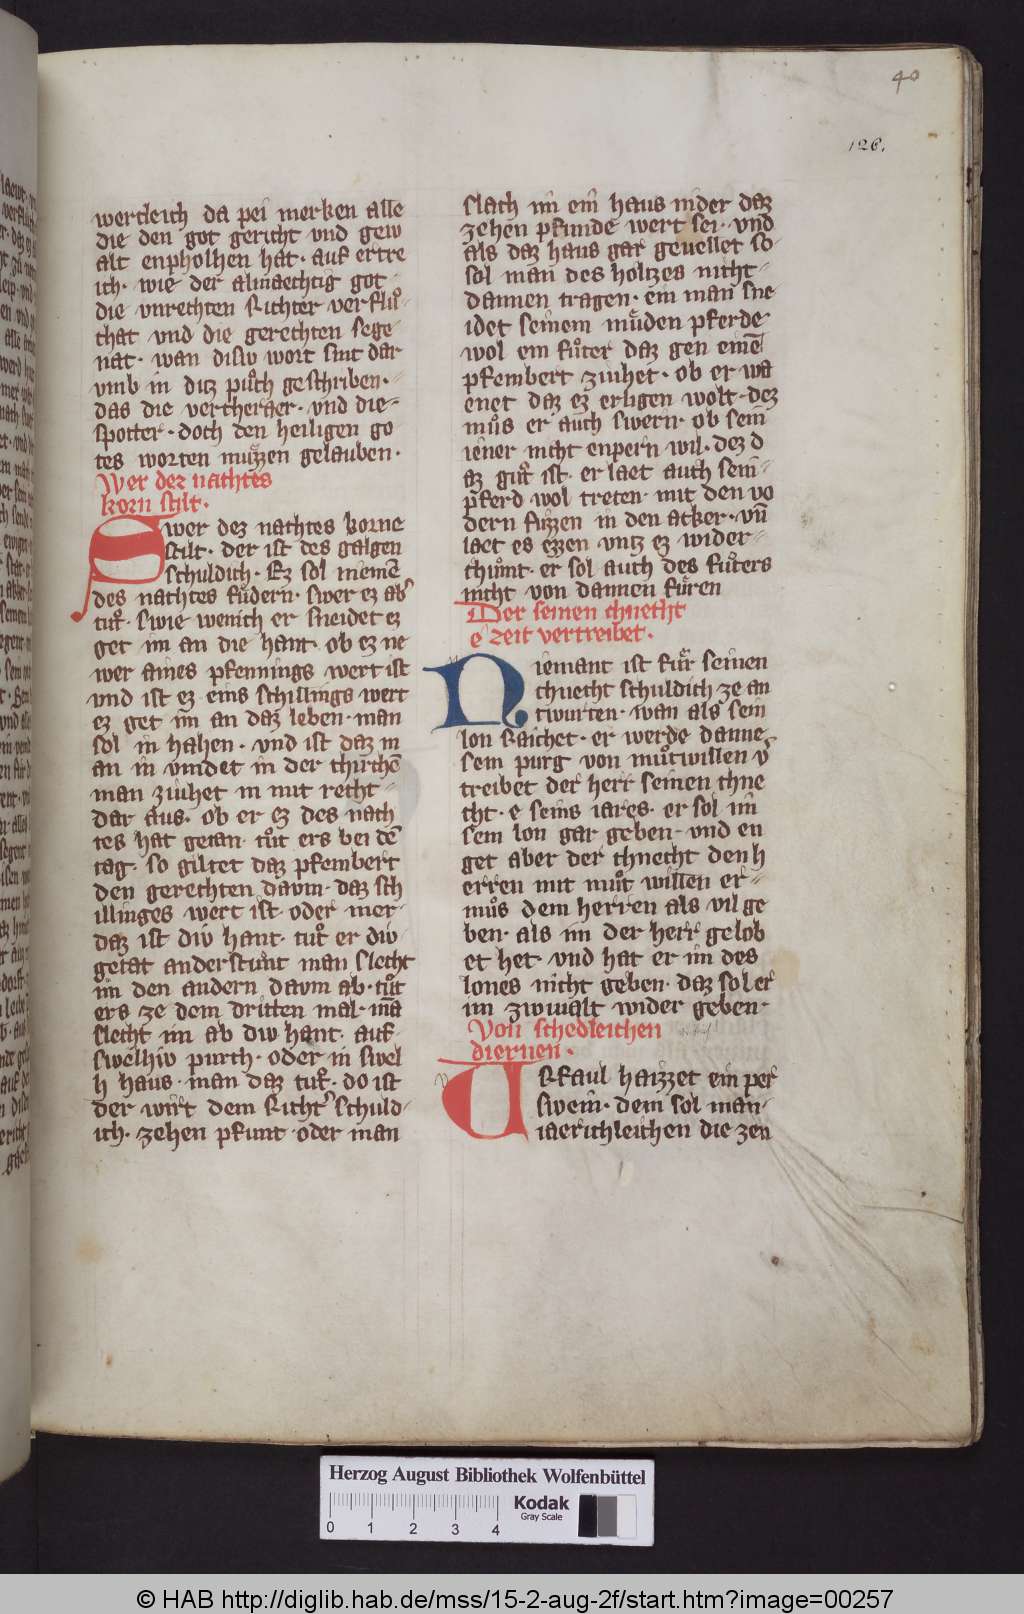 40
126.
wertleich da pei merken alle
die den got gericht vnd gew
alt enpholhen hat· auf ertre
ich· wie der almaechtig got·
die vnrechten Richter verfluͦ-
chat vnd die gerechten sege
nat· wan disiv wort sint dar
vmb in ditz puͦch geschriben·
das die vercheraer· vnd die-
spotter· doch den heiligen go
tes worten muͤzzen gelauben·
Wer dez nachtes
korn stilt·
Swer dez nachtes korne
stilt· der ist des galgen
schuldich· Ez sol niemē
des nachtes fuͦdern· swer ez ab̕
tuͦt· swie wenich er sneidet ez
get im an die hant· ob ez ne
wer aines pfennings wert ist
vnd ist ez eins schillings wert
ez get im an daz leben· man
sol in hahen· vnd ist daz m
an in vindet in der chirchē
man ziuhet in mit recht-
dar aus· ob er ez des nach
tes hat getan· tuͦt ers bei dē
tag· so giltet daz pfenbert
den gerechten davm· daz sch
illinges wert ist· oder mer·
daz ist div hant· tuͦt er div
getat anderstunt man slecht
im den andern davm ab· tuͦt
ers ze dem dritten mal· mā
slecht im ab div hant· auf
swelhiv purch· oder in swel
h haus· man daz tuͦt· do ist
der wirt dem Richt̕ schuld-
ich· zehen pfunt oder man
slach im ein haus nider daz
zehen pfunde wert sei· vnd
als daz haus gar geuellet so·
sol man des holtzes nicht-
dannen tragen· ein man sne
idet seinem muͤden pferde
wol ein fuͦter daz gen einē
pfenbert ziuhet· ob er wa
enet daz ez erligen wolt· dez
muͦs er auch swern· ob sein
iener nicht enpern wil· dez d
az guͦt ist· er laet auch sein-
pferd wol treten· mit den vo
dern fuzzen in den acker· vn̄
laet es ezzen vntz ez wider-
chuͦmt· er sol auch des fuͦters
nicht von dannen fuͤren
Der seinen chnecht
e zeit vertreibet·
Niemant ist fuͤr seinen
chnecht schuldich ze an
twurten· wan als sein
lon Raichet· er werde danne·
sein purg von muͦtwillen v̕
treibet der herr seinen chne
cht· e seins iares· er sol im
sein lon gar geben· vnd en
get aber der chnecht den h
erren mit muͦt willen er-
muͦs dem herren als vil ge
ben· als im der herr gelob
et het· vnd hat er im des
lones nicht geben· daz sol er
im zwiualt wider geben·
Von schedleichen
diernen·
Vrfaul haizzet ein per
swein· dem sol man·
iaerichleichen die zen
Herzog August Bibliothek Wolfenbüttel
0 1 2 3 4
Kodak
Gray Scale
© HAB http://diglib.hab.de/mss/15-2-aug-2f/start.htm?image=00257